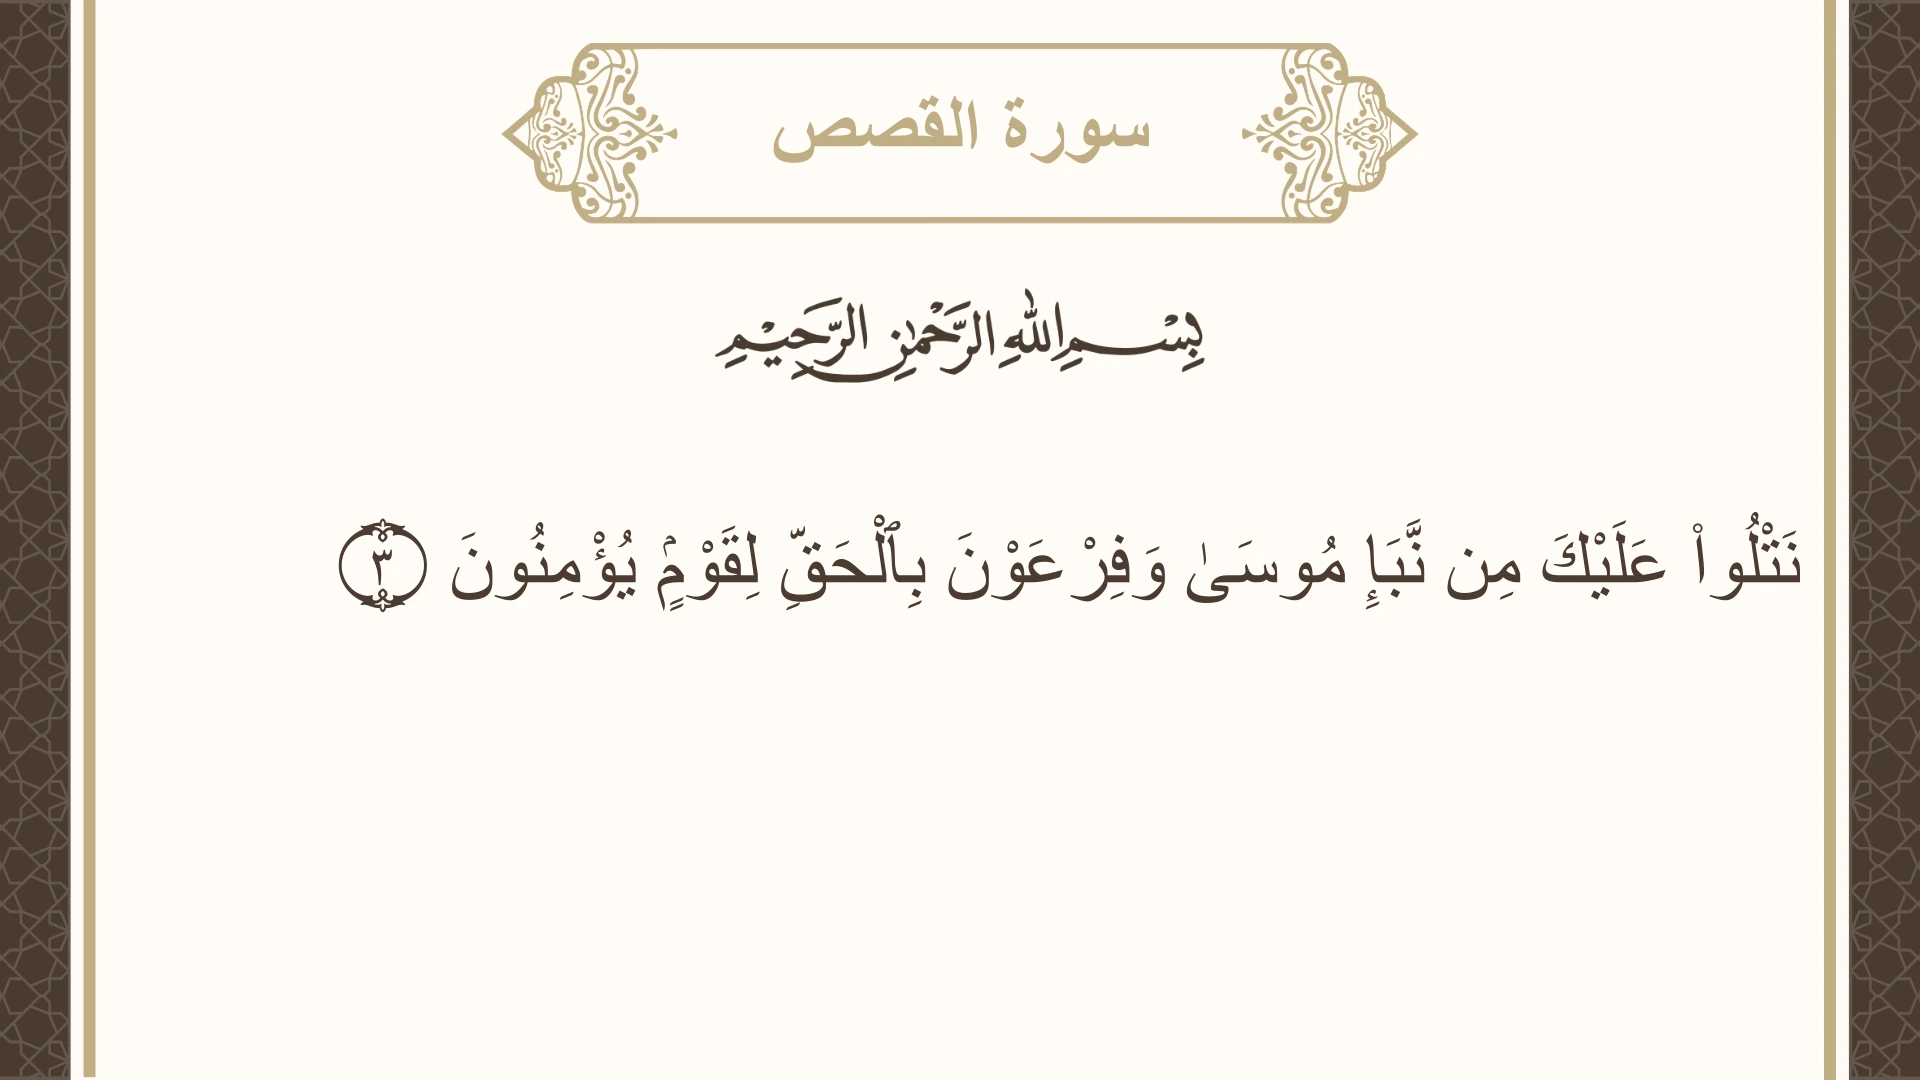 سورة القصص
بِسْمِ اللهِ الرَّحْمٰنِ الرَّحِيْمِ
نَتْلُواْ عَلَيْكَ مِن نَّبَإِ مُوسَىٰ وَفِرْعَوْنَ بِٱلْحَقِّ لِقَوْمٍۢ يُؤْمِنُونَ ٣